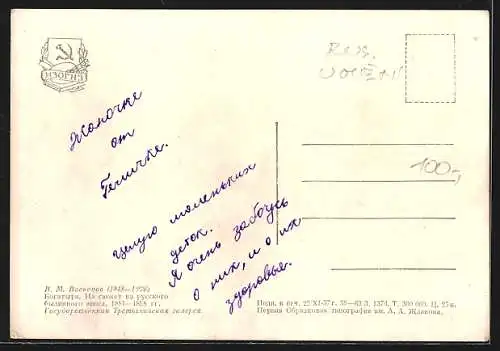 ИЗОГИЗ
Russ.
100,-
Жаночке
от
Генички.
Целую маленьких
деток.
Я очень забочусь
о них, и о их
здоровье.
В. М. Васнецов (1848—1926)
Богатыри. На сюжет из русского
былинного эпоса. 1881—1898 гг.
Государственная Третьяковская галерея
Подп. к печ. 22/XI-57 г. 55—62 З. 1374. Т. 300 000. Ц. 25 к.
Первая Образцовая типография им. А. А. Жданова.